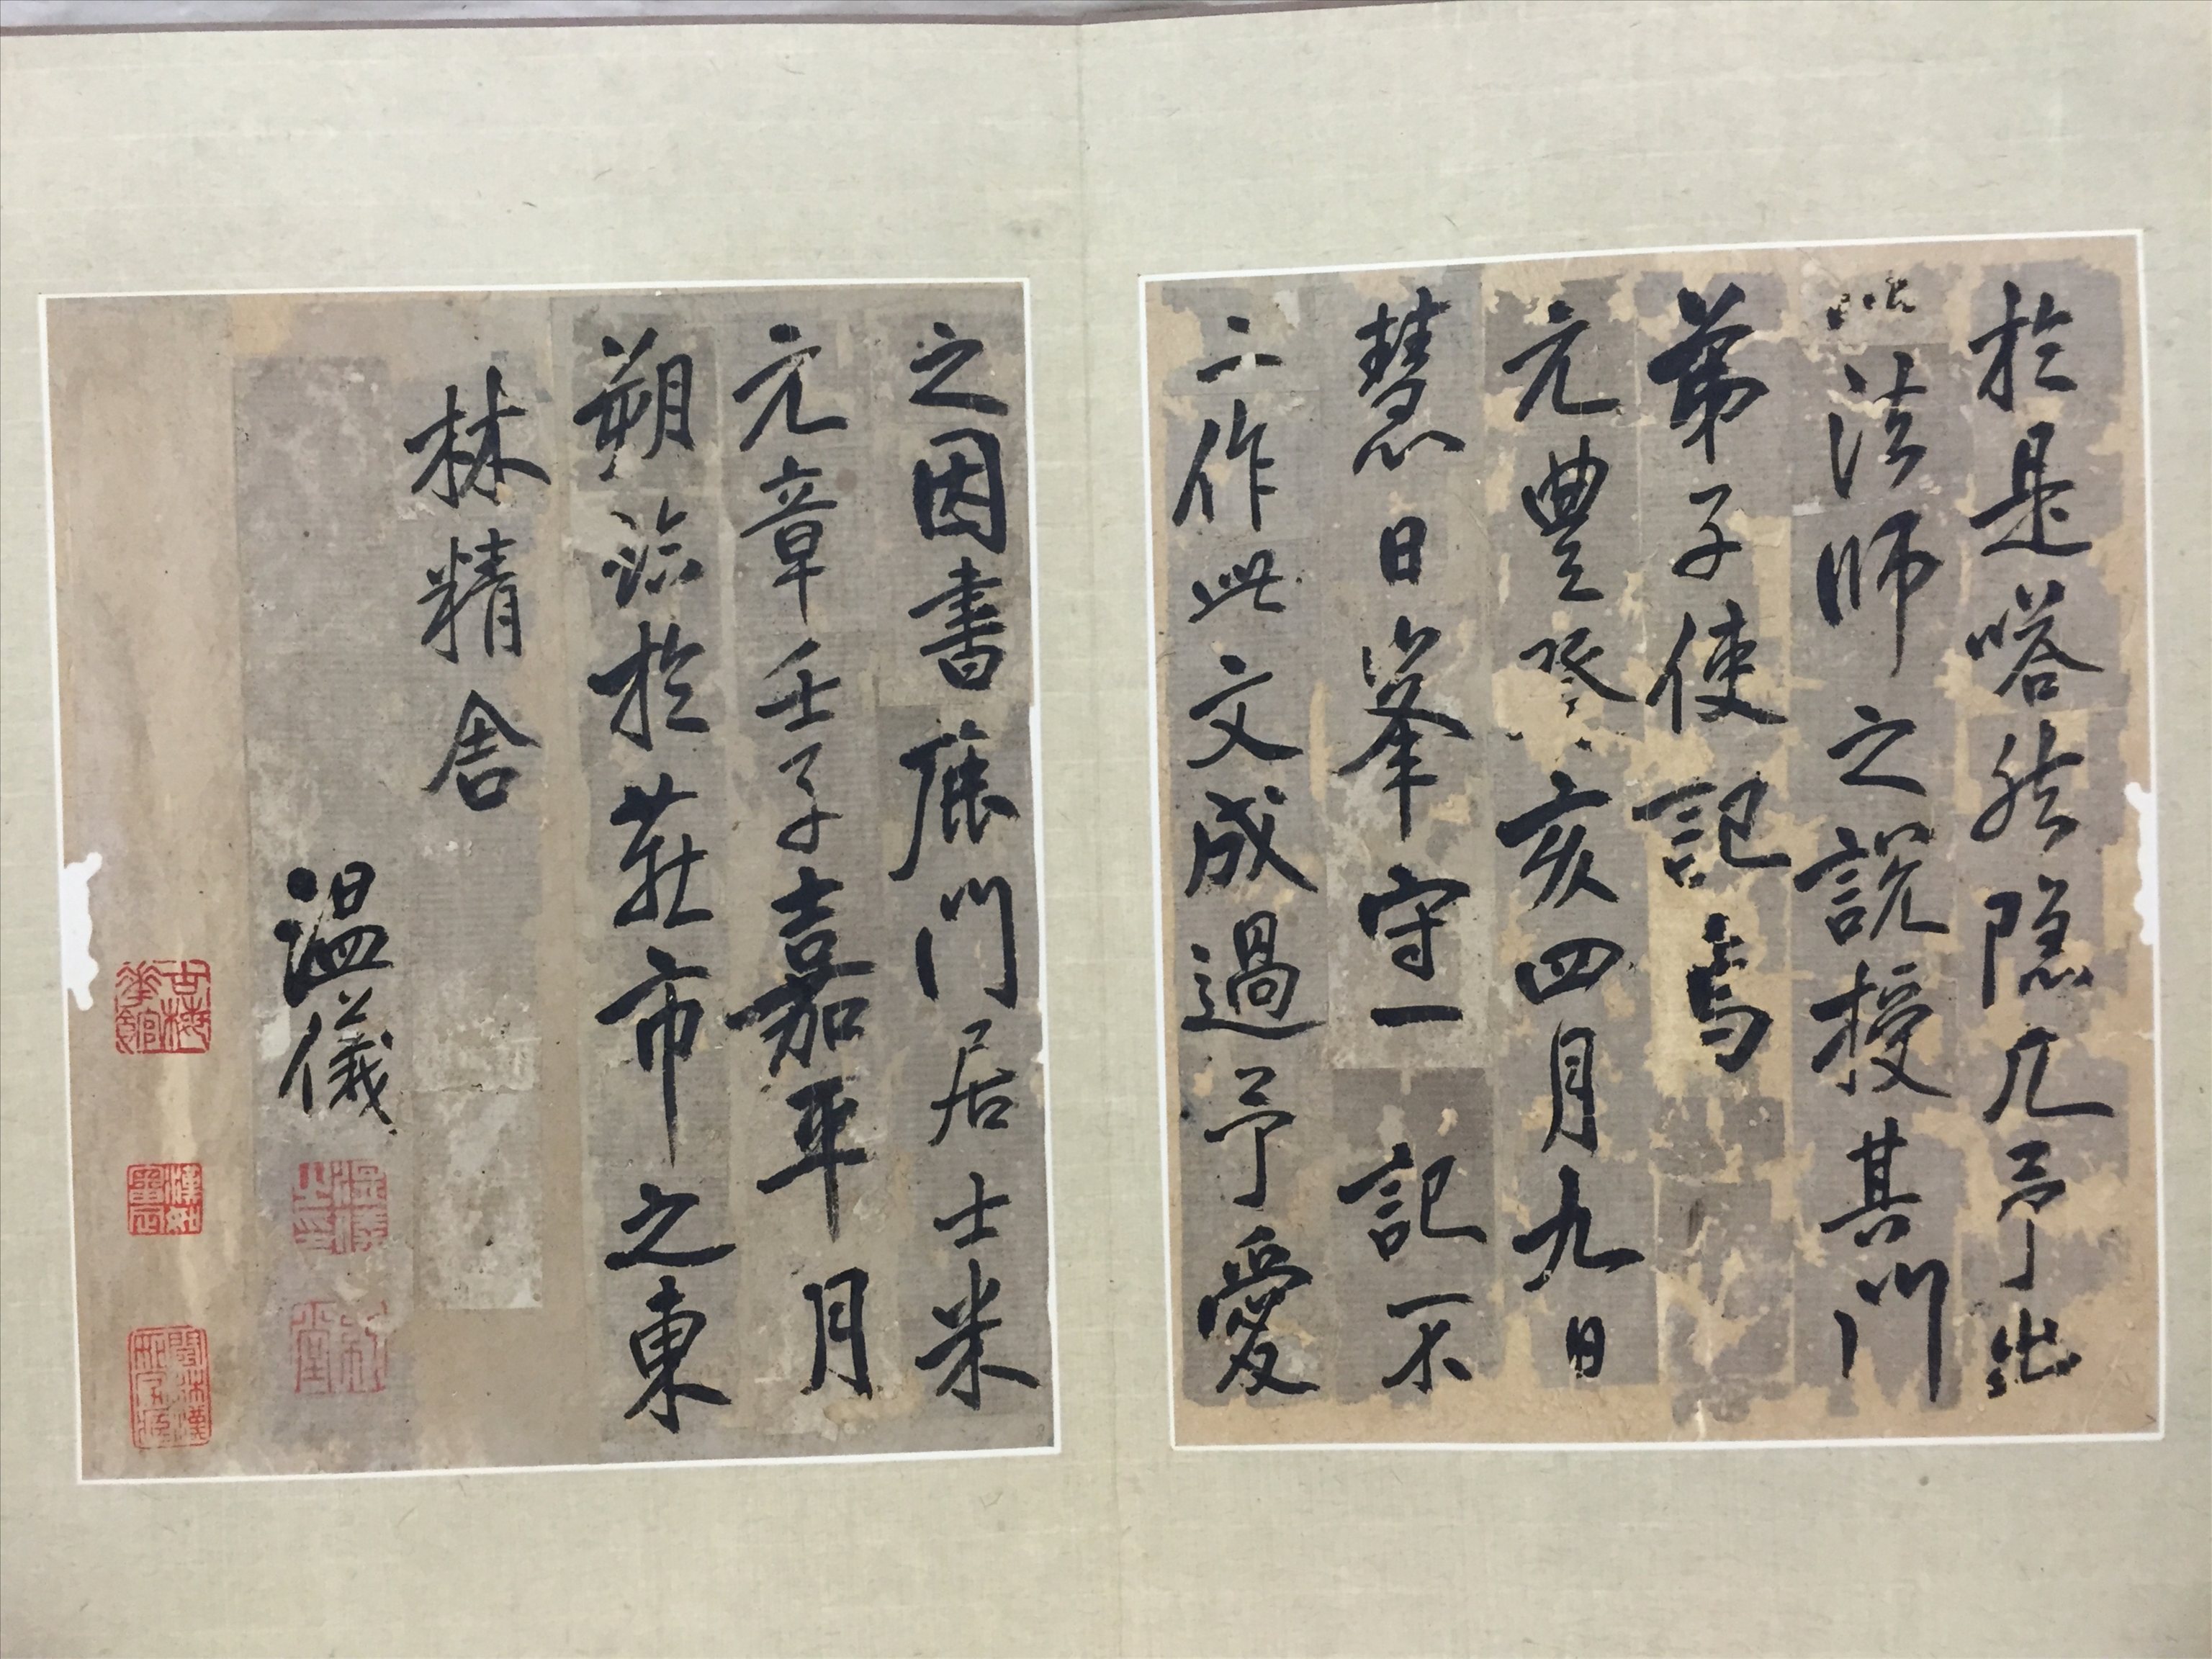 於是嗒然隱几予出
以法師之說授其門
弟子使記焉
元豐癸亥四月九日
慧日峯守一記不
二作此文成過予愛
之因書鹿門居士米
元章壬子嘉平月
朔臨於莊市之東
林精舍
溫儀
古梅華館